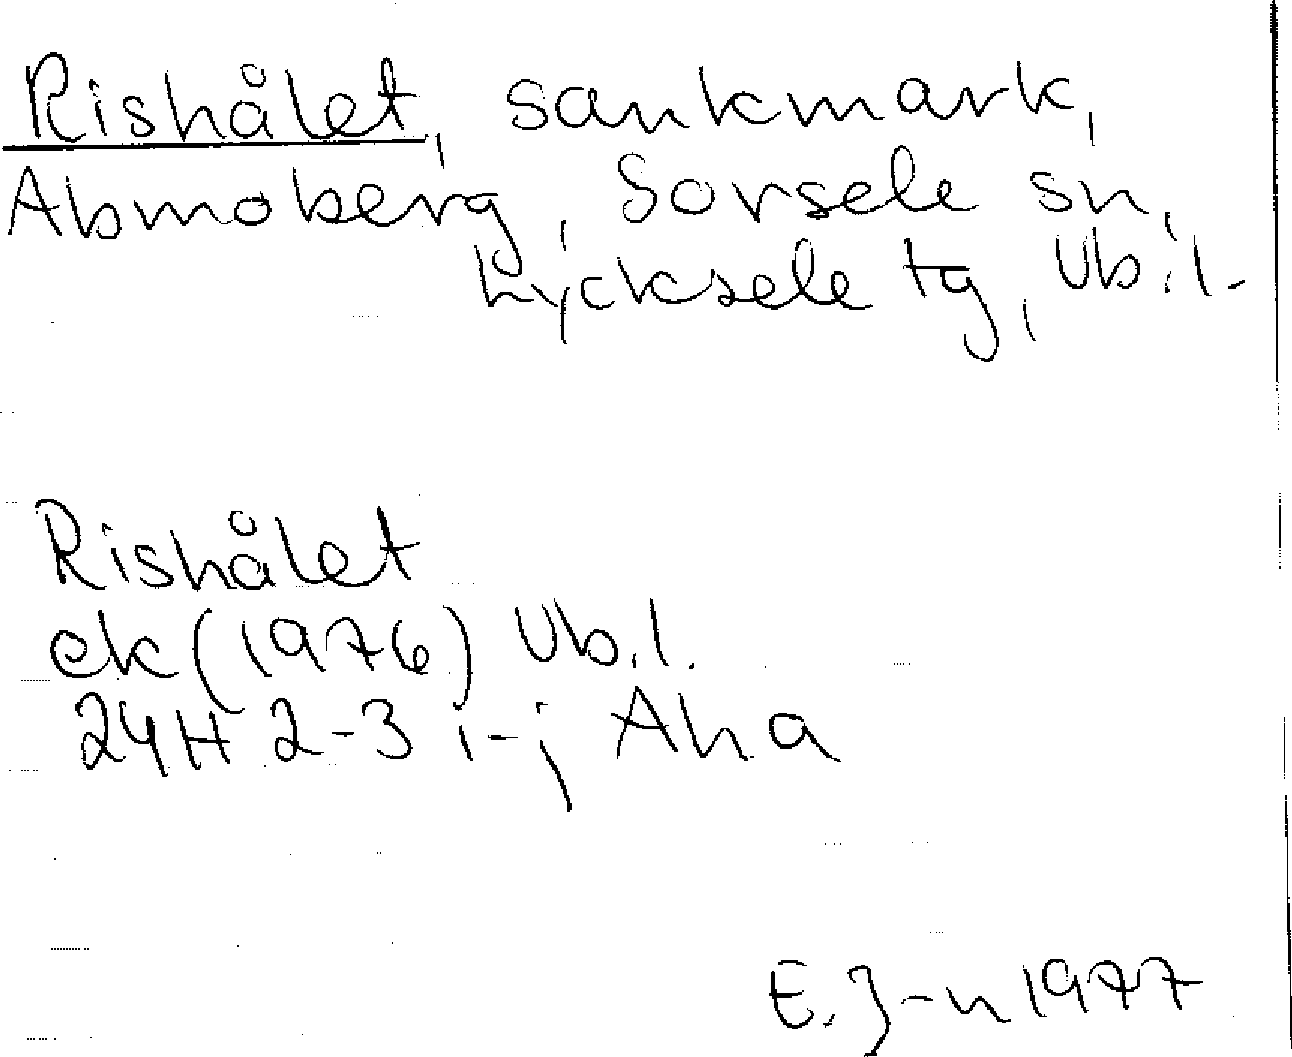 Rishålet, sankmark,
Abmoberg, Sorsele sn,
Lycksele tg, Vb.l.
Rishålet
ek (1976) Vb.l.
24H 2-3 i-j Aha
E.J-n 1977